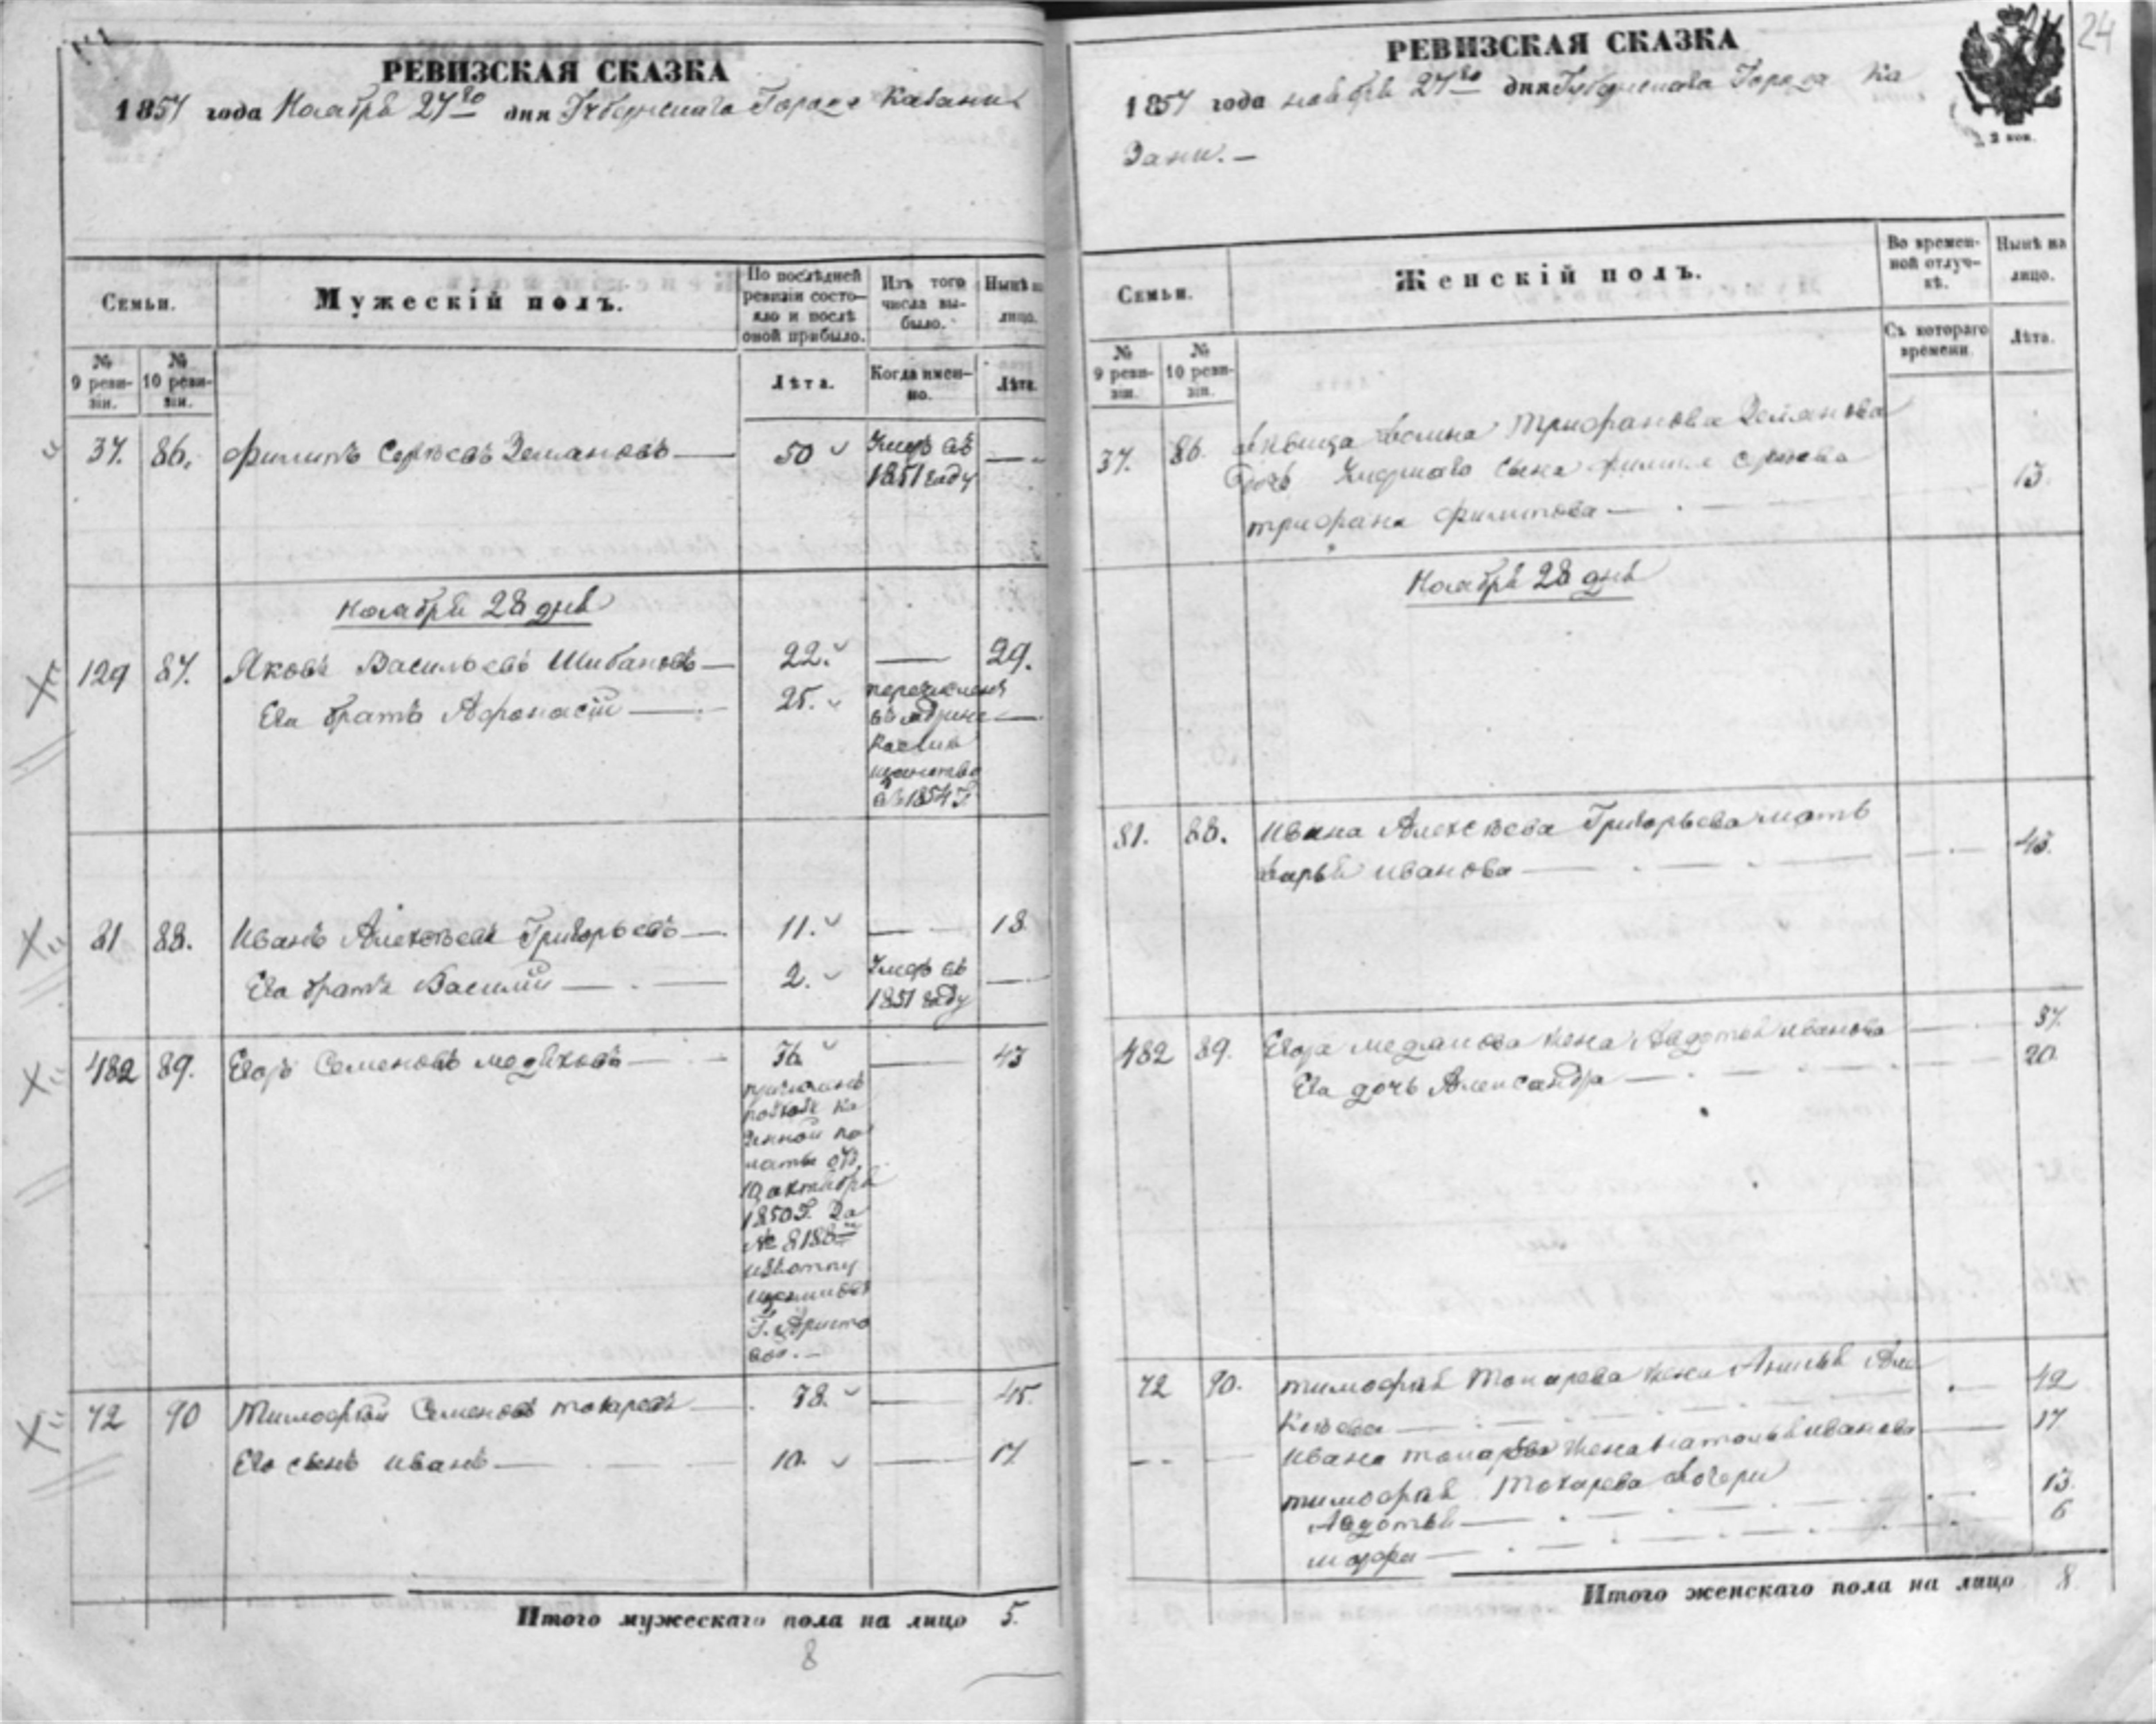 РЕВИЗСКАЯ СКАЗКА
1857 года Ноября 27го дня Губернскаго Города Казани
Семьи.
Мужескій полъ.
По послѣдней
ревизіи состо-
яло и послѣ
оной прибыло.
Изъ того
числа вы-
было.
Нынѣ на
лицо.
№
9 реви-
зіи.
№
10 реви-
зіи.
Лѣта.
Когда имен-
но.
Лѣта.
37. 86. Филипъ Сергѣевъ 50 Умеръ въ
1851 году
Ноября 28 дня
129 87. Яковъ Васильевъ Шибановъ 22. 29.
Его братъ Афонасій 25.
въ 1854 Г.
81 88. Иванъ Алексѣевъ Григорьевъ 11. 18
Его братъ Василий 2. Умеръ въ
1851 году
482 89. Егоръ Семеновъ 36 43
причисленъ
Ка
зенной па
латы отъ
10 октября
1850 Г. За
№ 8188
72 90 Тимофѣй Семеновъ Токаревъ 38. 45.
Его сынъ Иванъ 10. 17
Итого мужескаго пола на лицо 5.
8
24
РЕВИЗСКАЯ СКАЗКА
1857 года ноября 27го дня Губернскаго Города Ка
Зани.
2 коп.
Семьи.
Женскій полъ.
Во времен-
ной отлуч-
кѣ.
Нынѣ на
лицо.
№
9 реви-
зіи.
№
10 реви-
зіи.
Съ котораго
времени.
Лѣта.
37. 86. Трифанова
Дочь Умершаго сына Филипа Сергѣева
Трифана Филипова 13.
Ноября 28 дня
81. 88. Ивана Алексѣева Григорьева мать
Дарья Иванова 43.
482 89. Егора жена Авдотья Иванова 37.
Его дочь Александра 20.
72 90. Тимофѣя Токарева жена Анисья Але
ксѣева 42
Ивана Токарева жена Наталья Иванова 17
Тимофѣя Токарева дочери
Авдотья 13.
Марфа 6
Итого женскаго пола на лицо 8